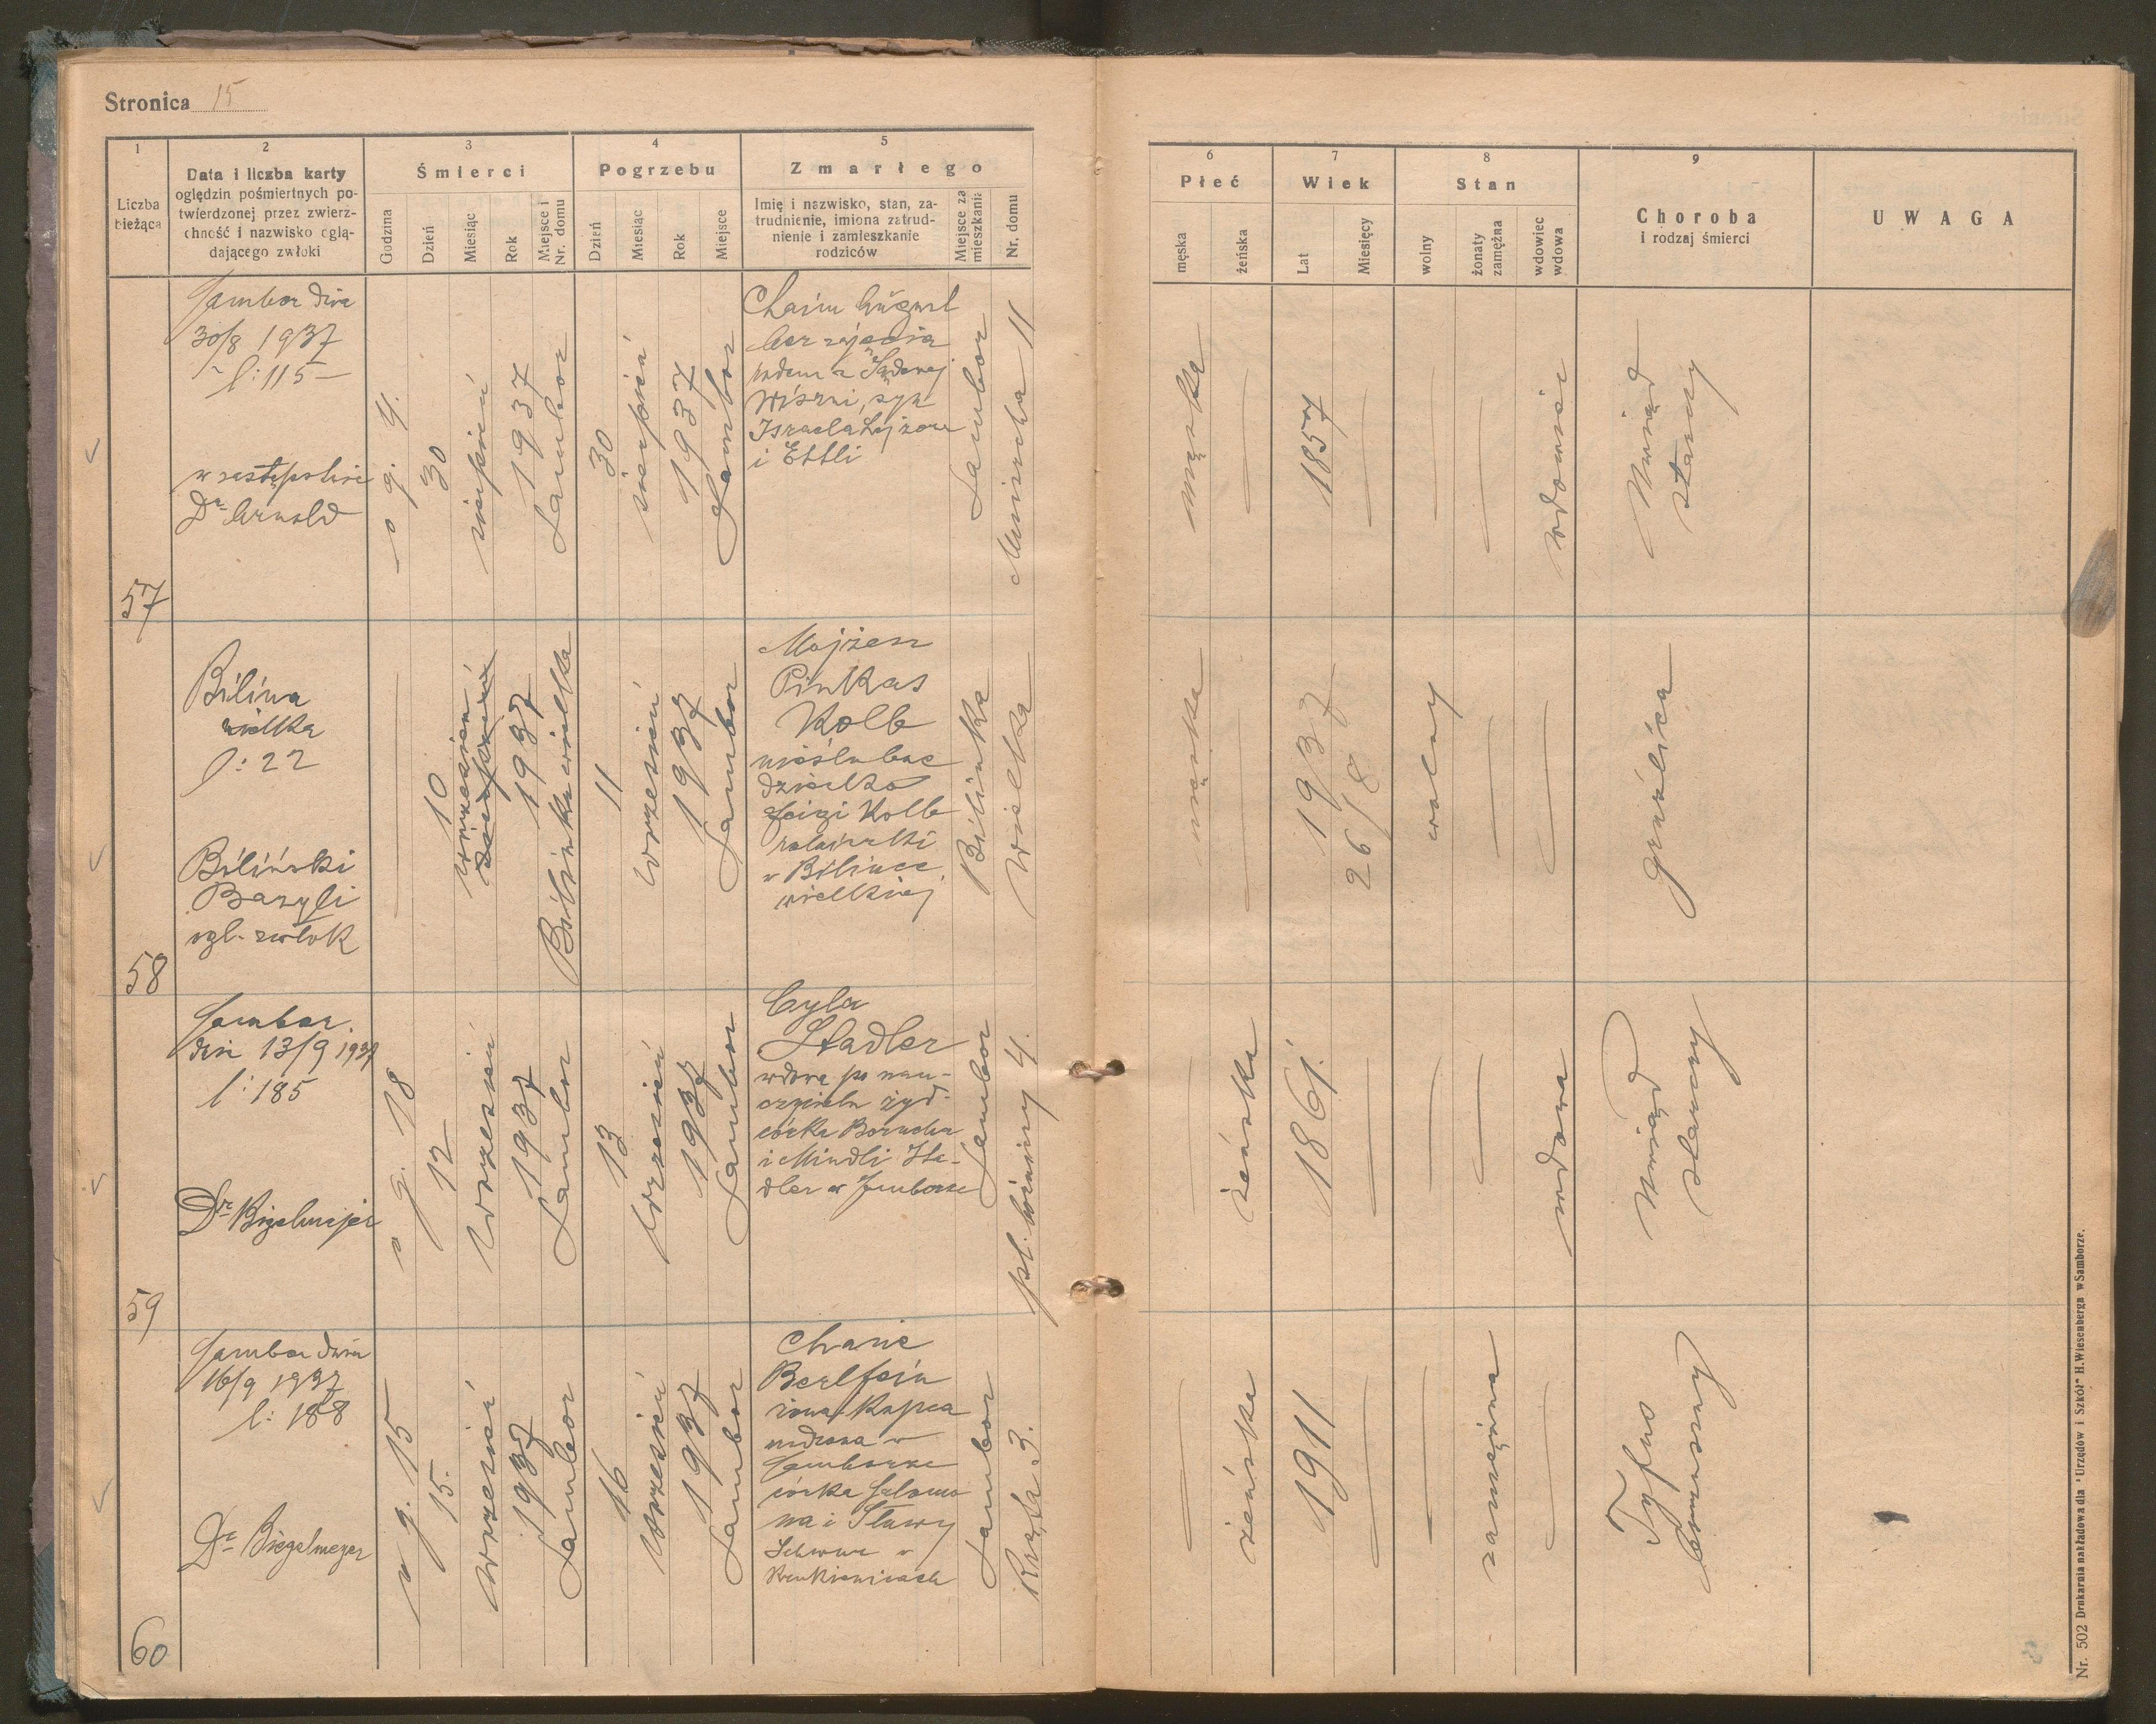 Stronica 15
1
2
3
4
5
Liczba
bieżąca
Data i liczba karty
oględzin pośmiertnych po-
twierdzonej przez zwierz-
chność i nazwisko oglą-
dającego zwłoki
Śmierci
Godzina
Dzień
Miesiąc
Rok
Miejsce i
Nr. domu
Pogrzebu
Dzień
Miesiąc
Rok
Miejsce
Zmarłego
Imię i nazwisko, stan, za-
trudnienie, imiona zatrud-
nienie i zamieszkanie
rodziców
Miejsce za
mieszkania
Nr. domu
6
7
8
9
Płeć
męska
żeńska
Wiek
Lat
Miesięcy
Stan
wolny
żonaty
zamężna
wdowiec
wdowa
Choroba
i rodzaj śmierci
UWAGA
57
Sambor dnia
30/8 1937
l: 115
w zastępstwie
Dr Arnold
o g. 4.
30
sierpień
1937
Sambor
30
sierpień
1937
Sambor
Chaim
bez zajęcia
rodem z Sądowej
Wiszni, syn
Izraela
i Ettli
Sambor
11
męska
1857
wdowiec
Uwiąd
starczy
58
Bilina
wielka
l: 22
Biliński
Bazyli
ogl. zwłok
10
wrzesień
1937
Bilinka wielka
11
wrzesień
1937
Sambor
Mojżesz
Pinkas
Kolb
nieślubne
dziecko
Feigi Kolb
w Bilince
wielkiej
Bilinka
Wielka
męska
1937
26/8
wolny
gruźlica
59
Sambor
dnia 13/9 1937
l: 185
Dr Bigelmajer
o g. 18
12
wrzesień
1937
Sambor
13
wrzesień
1937
Sambor
Cyla
Stadler
wdowa po nau-
czycielu żyd.
córka Borucha
i Mindli Sta-
dler w Samborze
Sambor
pl. 4.
żeńska
1861.
wdowa
Uwiąd
starczy
60
Sambor dnia
16/9 1937
l: 188
Dr Biegelmejer
o g. 15
15.
wrzesień
1937
Sambor
16
wrzesień
1937
Sambor
Chane
Berlfein
żona kupca
urodzona w
Samborze
córka Salomo
na i Sławy
w
Sambor
3.
żeńska
1911
zamężna
Tyfus
brzuszny
Nr. 502 Drukarnia nakładowa dla "Urzędów i Szkół" H. Wiesenberga w Samborze.